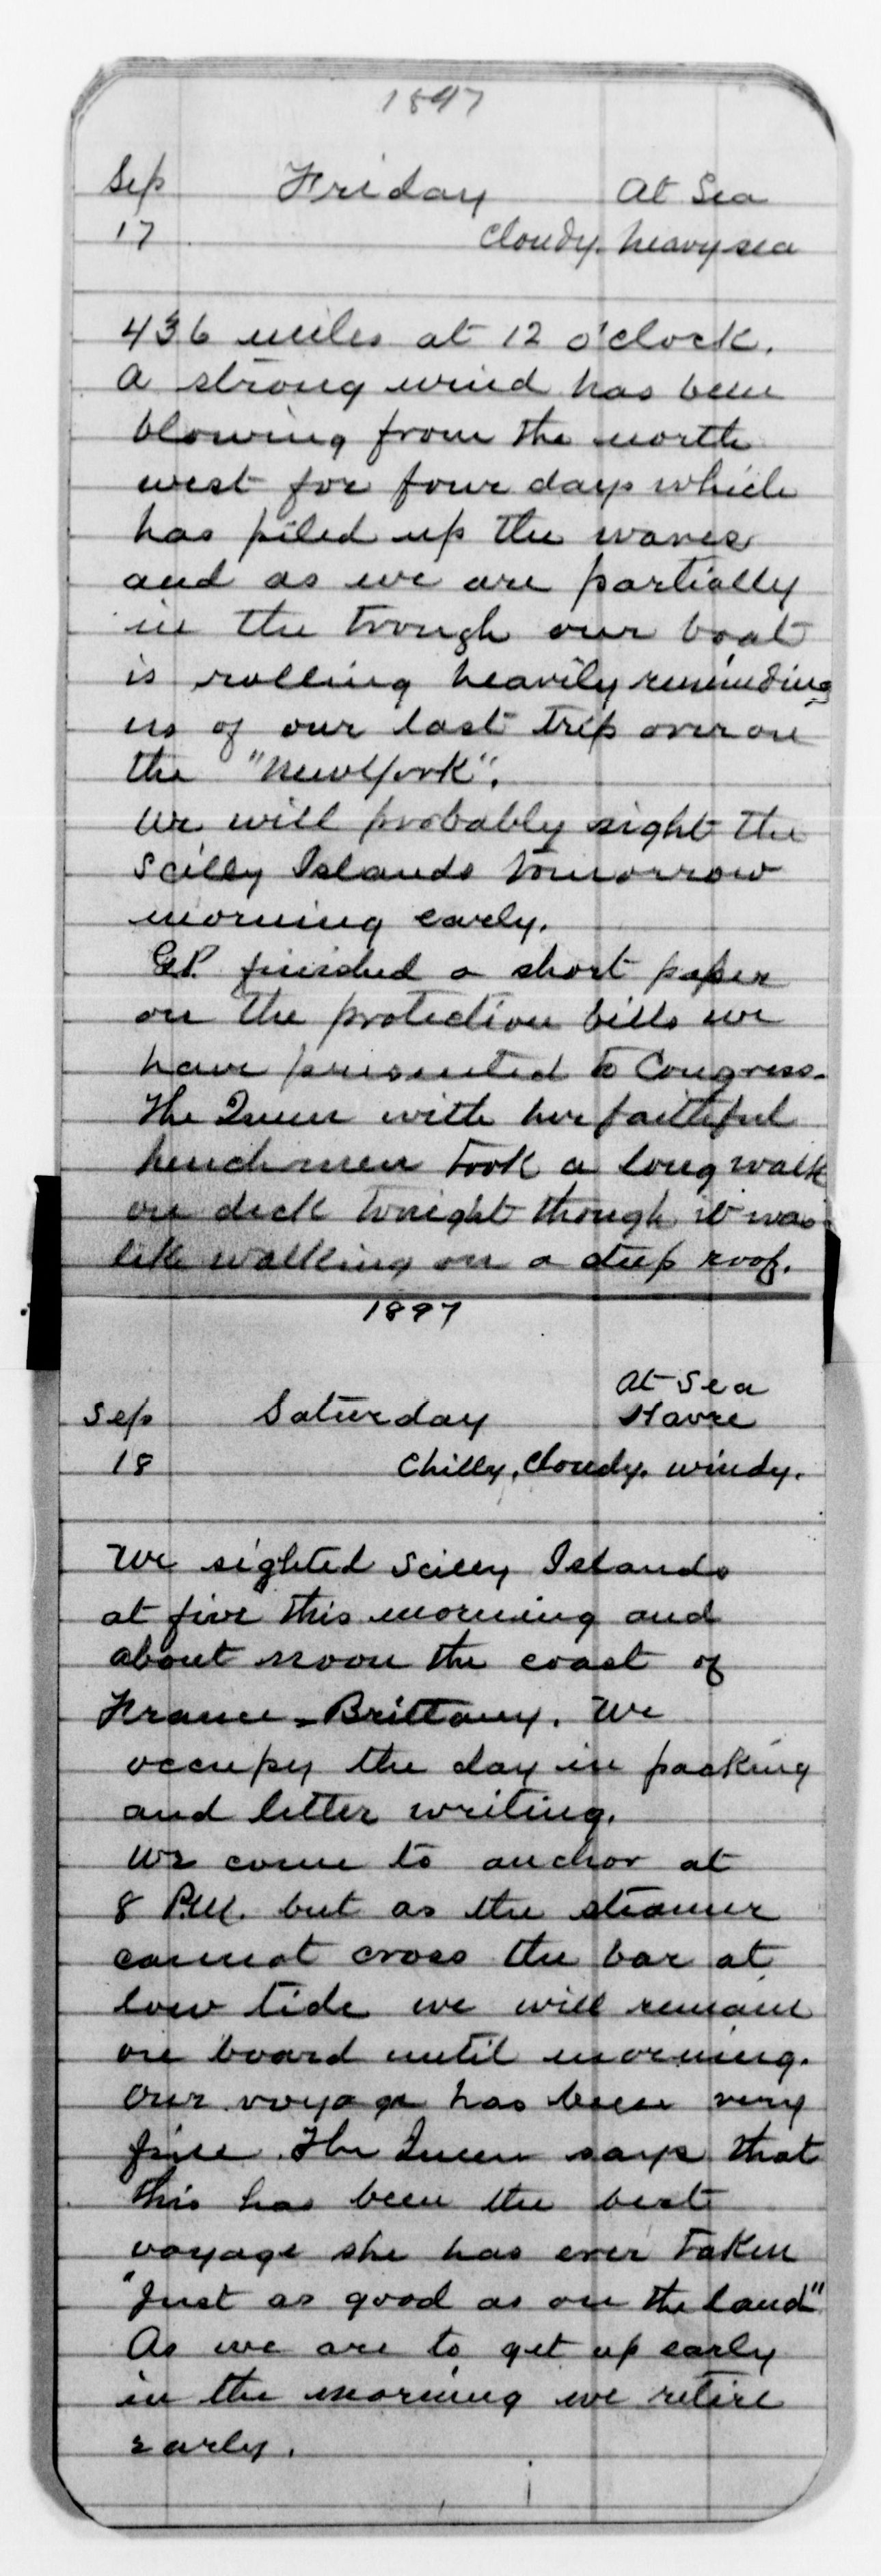 1897
Sep Friday At Sea
17 Cloudy. heavy sea
436 miles at 12 o'clock.
A strong wind has been
blowing from the north
west for four days which
has piled up the waves
and as we are partially
in the trough our boat
is rolling heavily reminding
us of our last trip over on
the "New York".
We will probably sight the
Scilly Islands tomorrow
morning early.
G.P. finished a short paper
on the protection bills we
have presented to Congress.
The Queen with her faithful
henchmen took a long walk
on deck tonight though it was
like walking on a steep roof.
1897
At Sea
Sep Saturday Havre
18 Chilly, Cloudy. windy.
We sighted Scilly Islands
at five this morning and
about noon the coast of
France - Brittany. We
occupy the day in packing
and letter writing.
We come to anchor at
8 P.M. but as the steamer
cannot cross the bar at
low tide we will remain
on board until morning.
Our voyage has been very
fine. The Queen says that
this has been the best
voyage she has ever taken
"Just as good as on the land"
As we are to get up early
in the morning we retire
early.